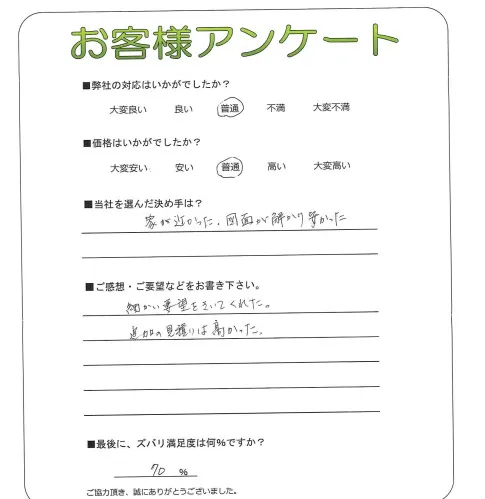 お客様アンケート
■弊社の対応はいかがでしたか？
大変良い 良い 普通 不満 大変不満
■価格はいかがでしたか？
大変安い 安い 普通 高い 大変高い
■当社を選んだ決め手は？
家が近かった、図面が解かり安かった
■ご感想・ご要望などをお書き下さい。
細かい要望をきいてくれた。
追加の見積りは高かった。
■最後に、ズバリ満足度は何％ですか？
70 ％
ご協力頂き、誠にありがとうございました。